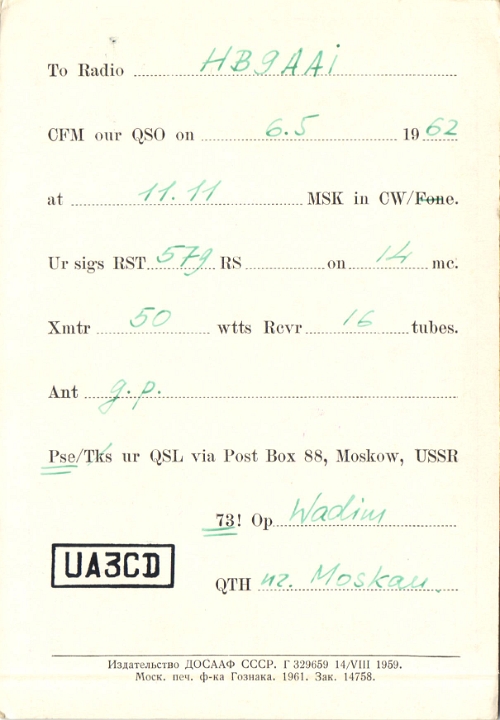 To Radio HB9AAi
CFM our QSO on 6.5 1962
at 11.11 MSK in CW/Fone.
Ur sigs RST 579 RS on 14 mc.
Xmtr 50 wtts Rcvr 16 tubes.
Ant g.p.
Pse/Tks ur QSL via Post Box 88, Moskow, USSR
73! Op Wadim
UA3CD
QTH nr. Moskau.
Издательство ДОСААФ СССР. Г 329659 14/VIII 1959.
Моск. печ. ф-ка Гознака. 1961. Зак. 14758.